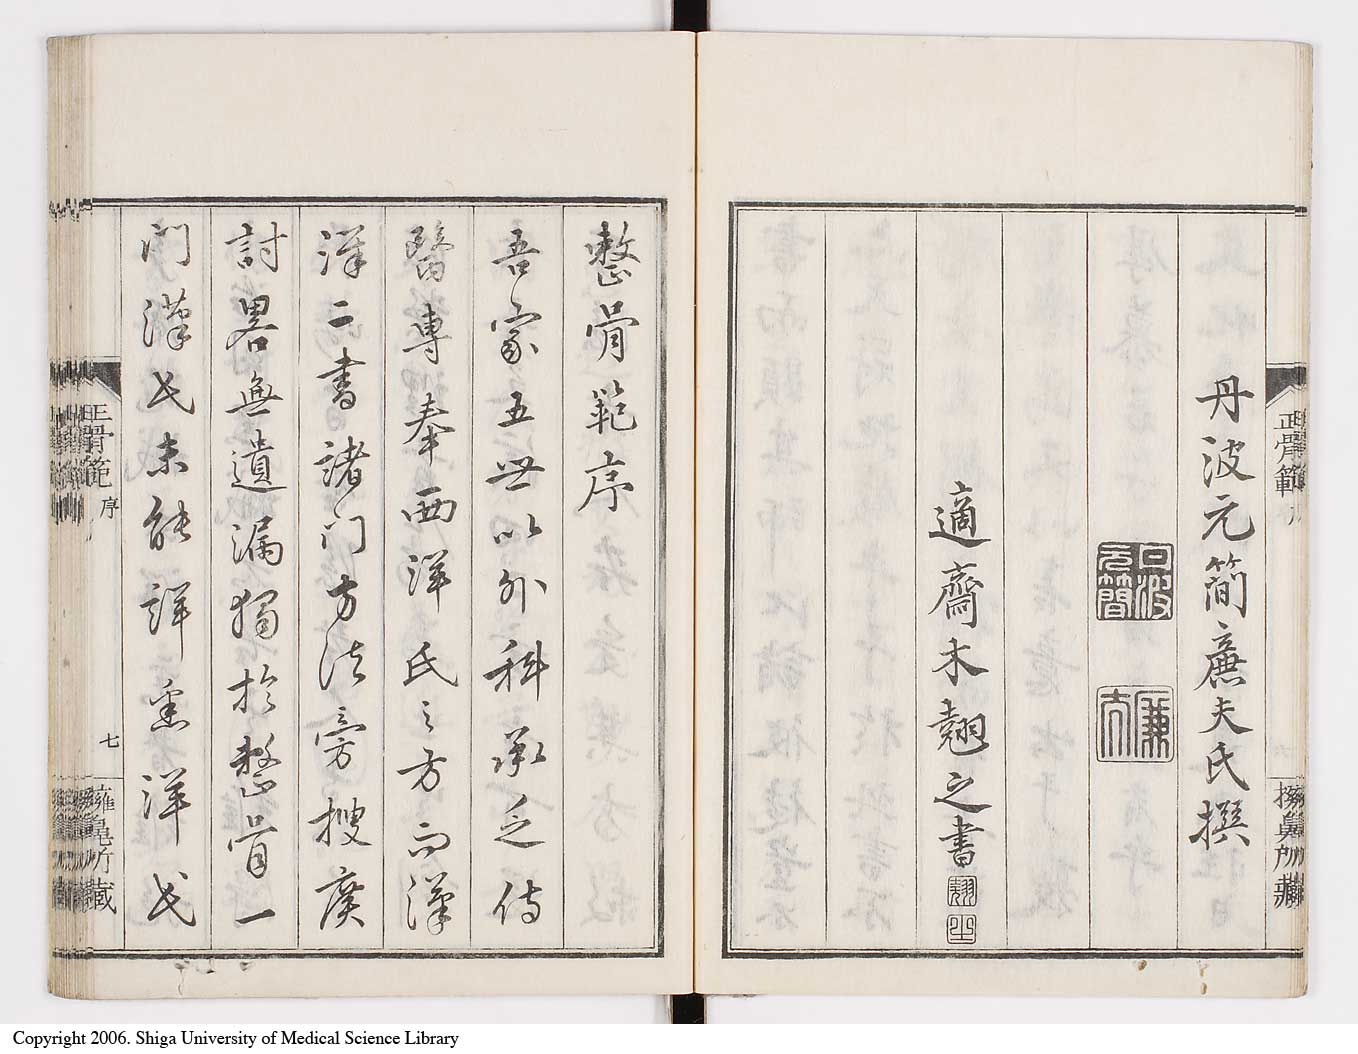 丹波元簡廉夫氏撰
適齋木翹之書
正骨範
整骨範序
吾家五世以外科承乏侍
醫專奉西洋氏之方而漢
洋二書諸門方法旁搜廣
討畧無遺漏獨於整骨一
門漢氏未能詳悉洋氏
骨範 序 七
Copyright 2006. Shiga University of Medical Science Library